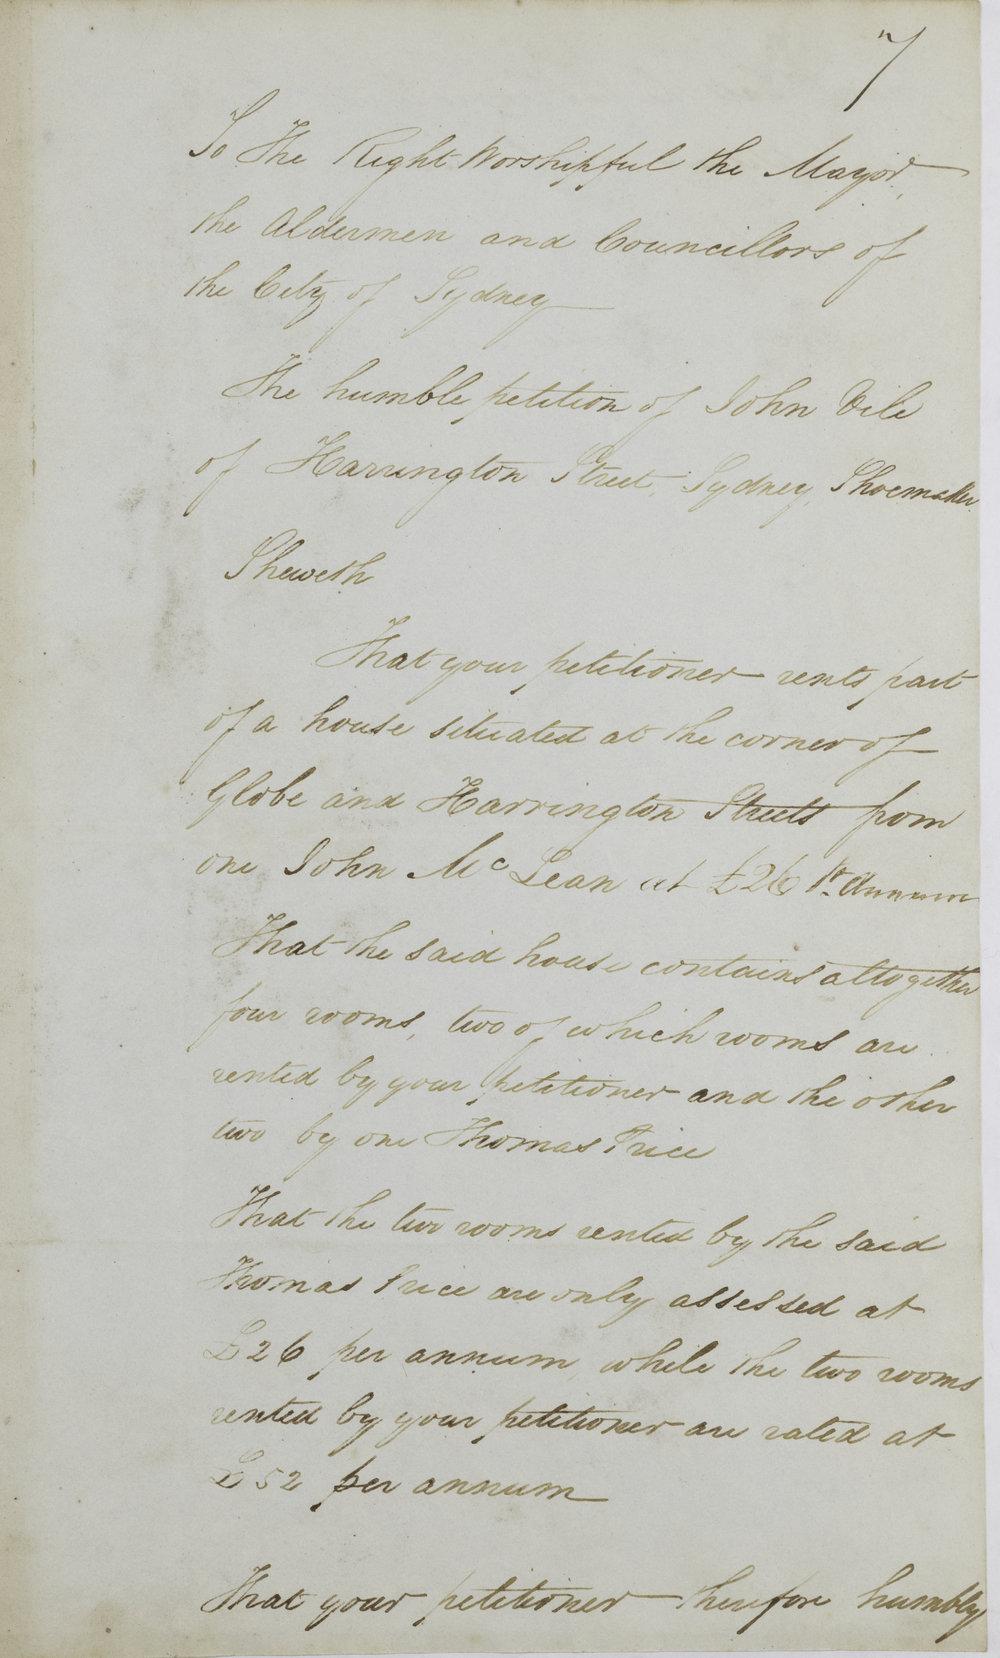 7
To The Right Worshipful the Mayor,
the Aldermen and Councillors of
the City of Sydney
The humble petition of John Vile
of Harrington Street, Sydney, Shoemaker
Sheweth
That your petitioner rents part
of a house situated at the corner of
Globe and Harrington Streets from
one John McLean at £26 Pr. Annum
That the said house contains altogether
four rooms, two of which rooms are
rented by your petitioner and the other
two by one Thomas Price
That the two rooms rented by the said
Thomas Price are only assessed at
£26 per annum, while the two rooms
rented by your petitioner are rated at
£52 per annum
That your petitioner therefore humbly